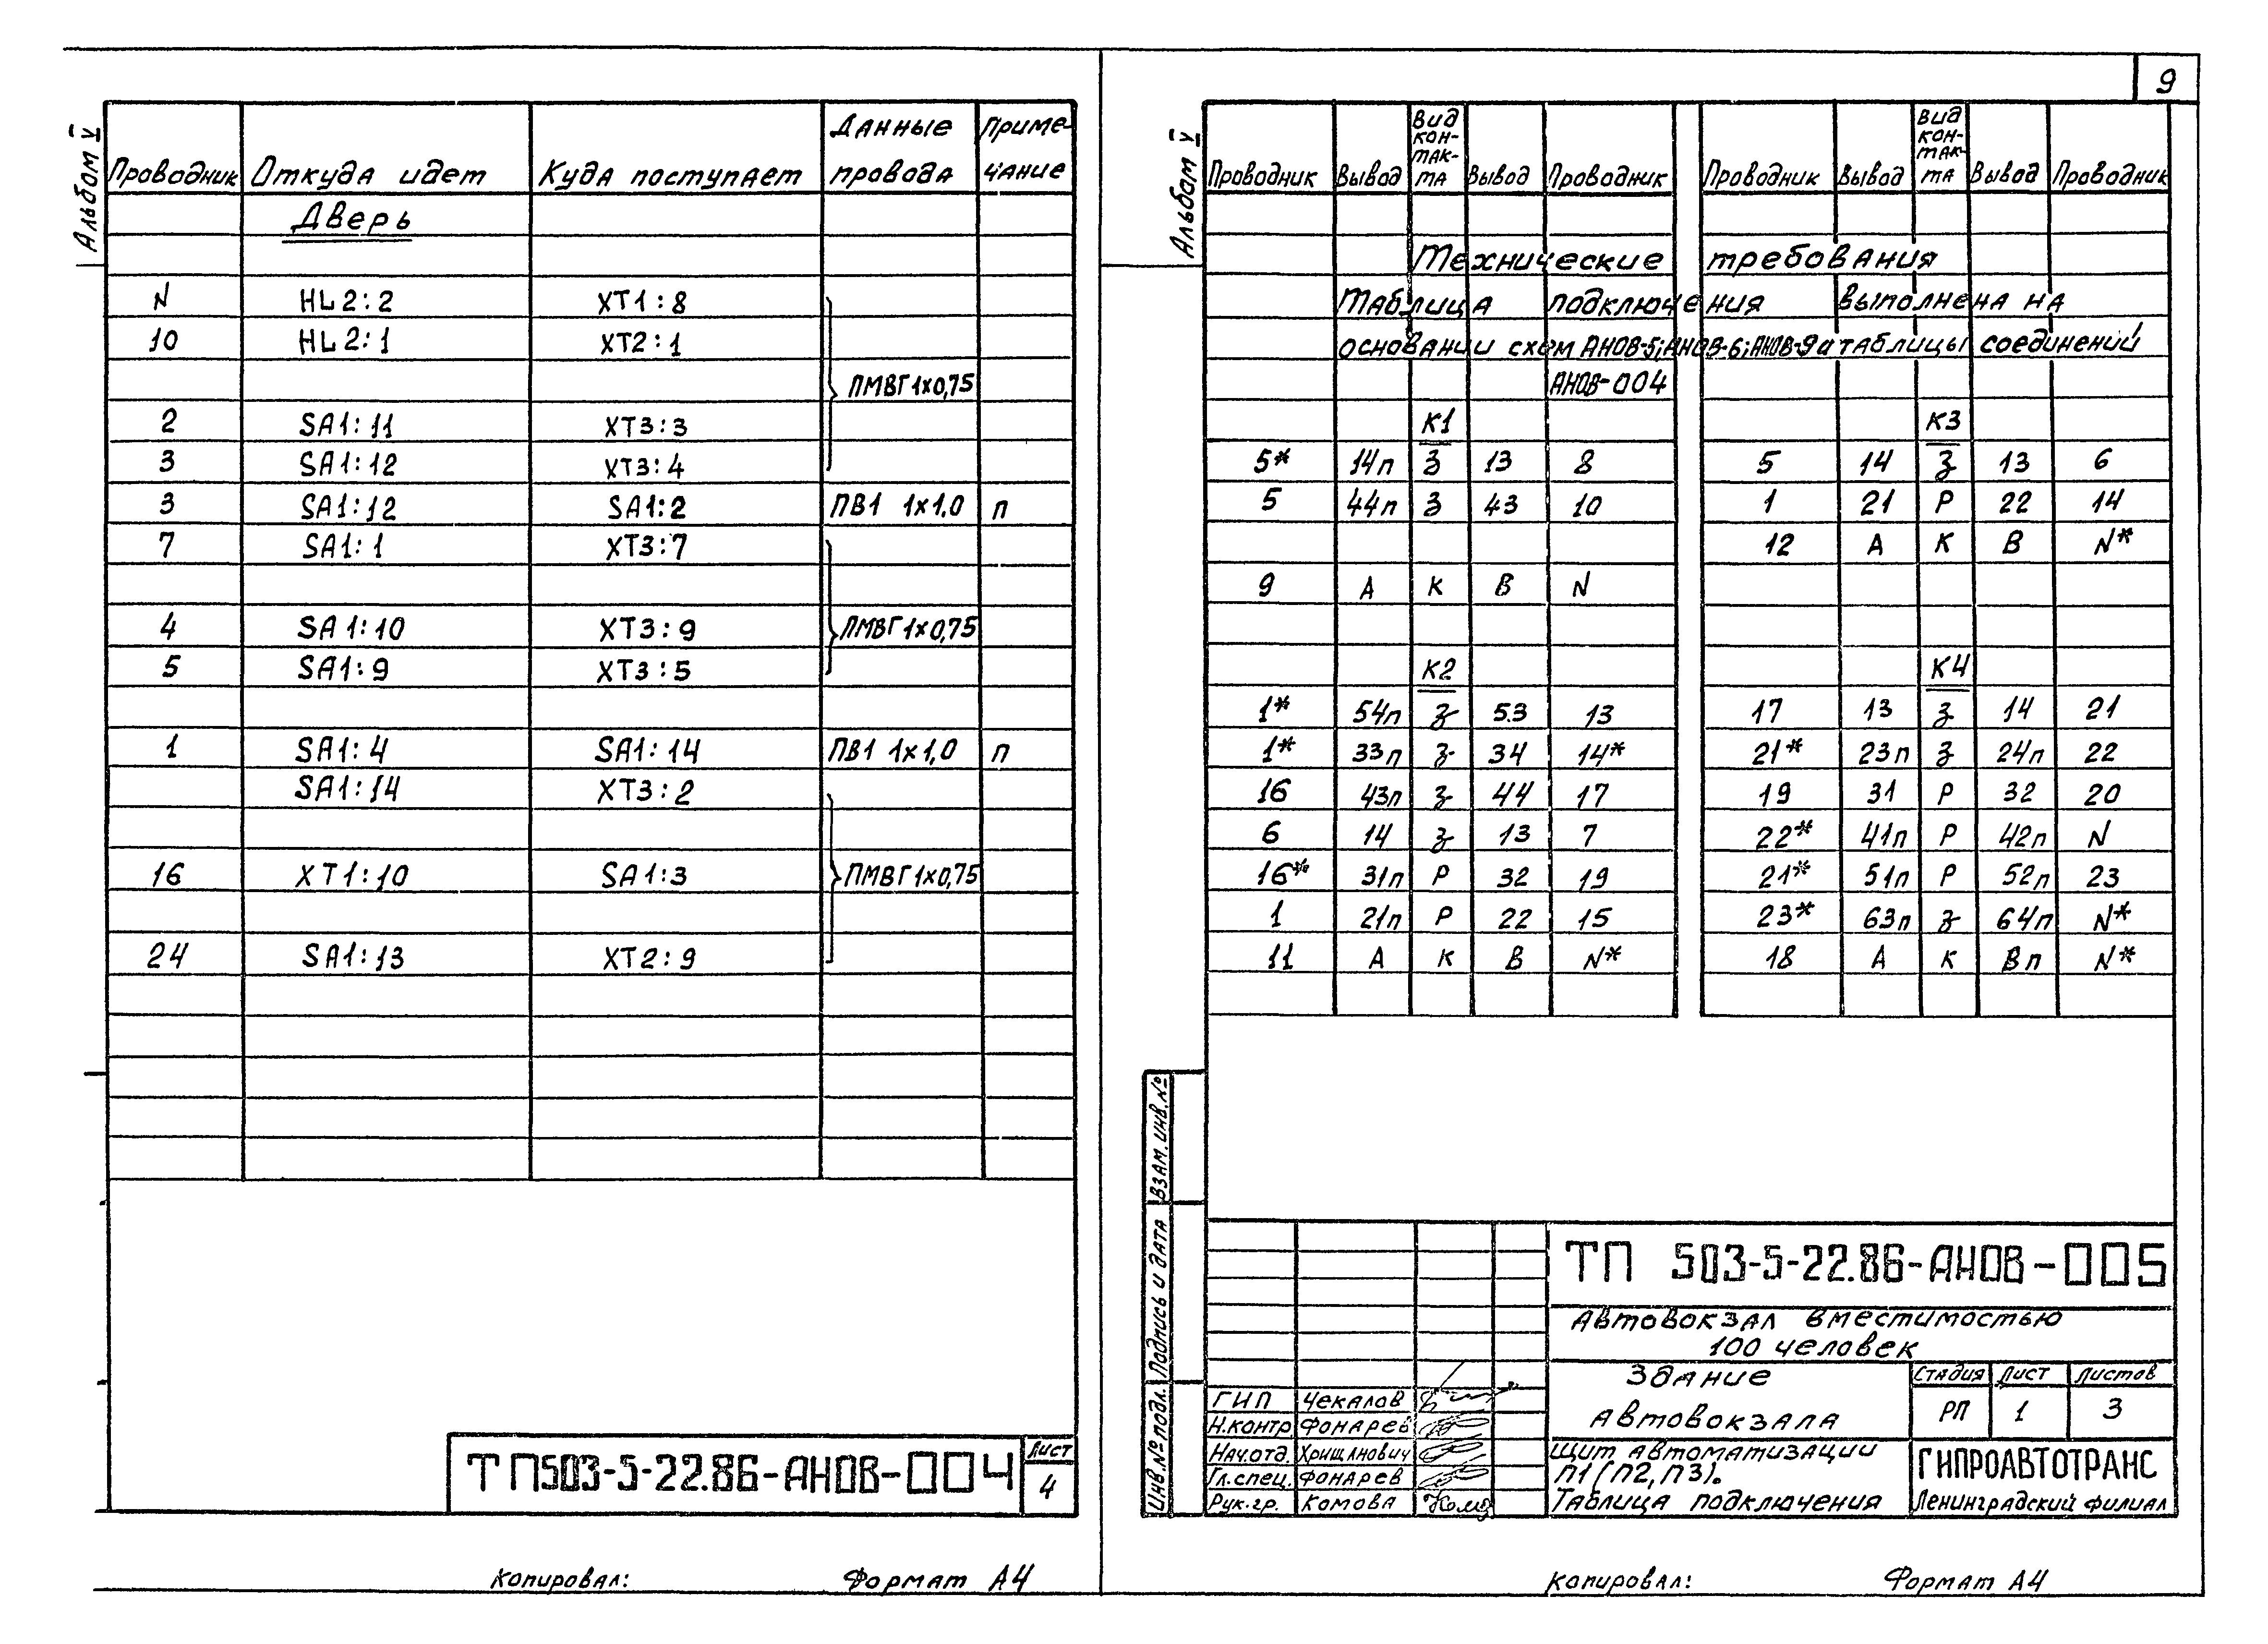 9
Альбом V
Проводник Откуда идет Куда поступает Данные провода Примечание
Дверь
N HL2:2 XT1:8
10 HL2:1 XT2:1
ПМВГ1х0,75
2 SA1:11 XT3:3
3 SA1:12 XT3:4
3 SA1:12 SA1:2 ПВ1 1х1,0 п
7 SA1:1 XT3:7
4 SA1:10 XT3:9 ПМВГ1х0,75
5 SA1:9 XT3:5
1 SA1:4 SA1:14 ПВ1 1х1,0 п
SA1:14 XT3:2
16 XT1:10 SA1:3 ПМВГ1х0,75
24 SA1:13 XT2:9
ТП503-5-22.86-АНОВ-004 Лист 4
Копировал: Формат А4
Альбом V
Проводник Вывод Вид контакта Вывод Проводник Проводник Вывод Вид контакта Вывод Проводник
Технические требования
Таблица подключения выполнена на
основании схем АНОВ-5;АНОВ-6;АНОВ-9 и таблицы соединений
АНОВ-004
К1 К3
5* 14п З 13 8 5 14 З 13 6
5 44п З 43 10 1 21 Р 22 14
12 А К В N*
9 А К В N
К2 К4
1* 54п З 53 13 17 13 З 14 21
1* 33п З 34 14* 21* 23п З 24п 22
16 43п З 44 17 19 31 Р 32 20
6 14 З 13 7 22* 41п Р 42п N
16* 31п Р 32 19 21* 51п Р 52п 23
1 21п Р 22 15 23* 63п З 64п N*
11 А К В N* 18 А К Вп N*
Инв.№ подл. Подпись и дата Взам. инв.№
ТП 503-5-22.86-АНОВ-005
Автовокзал вместимостью
100 человек
Здание
автовокзала
Стадия Лист Листов
РП 1 3
ГИП Чекалов
Н.контр Фонарев
Нач.отд. Хришанович
Гл.спец. Фонарев
Рук.гр. Комова
Щит автоматизации
П1(П2,П3).
Таблица подключения
ГИПРОАВТОТРАНС
Ленинградский филиал
Копировал: Формат А4